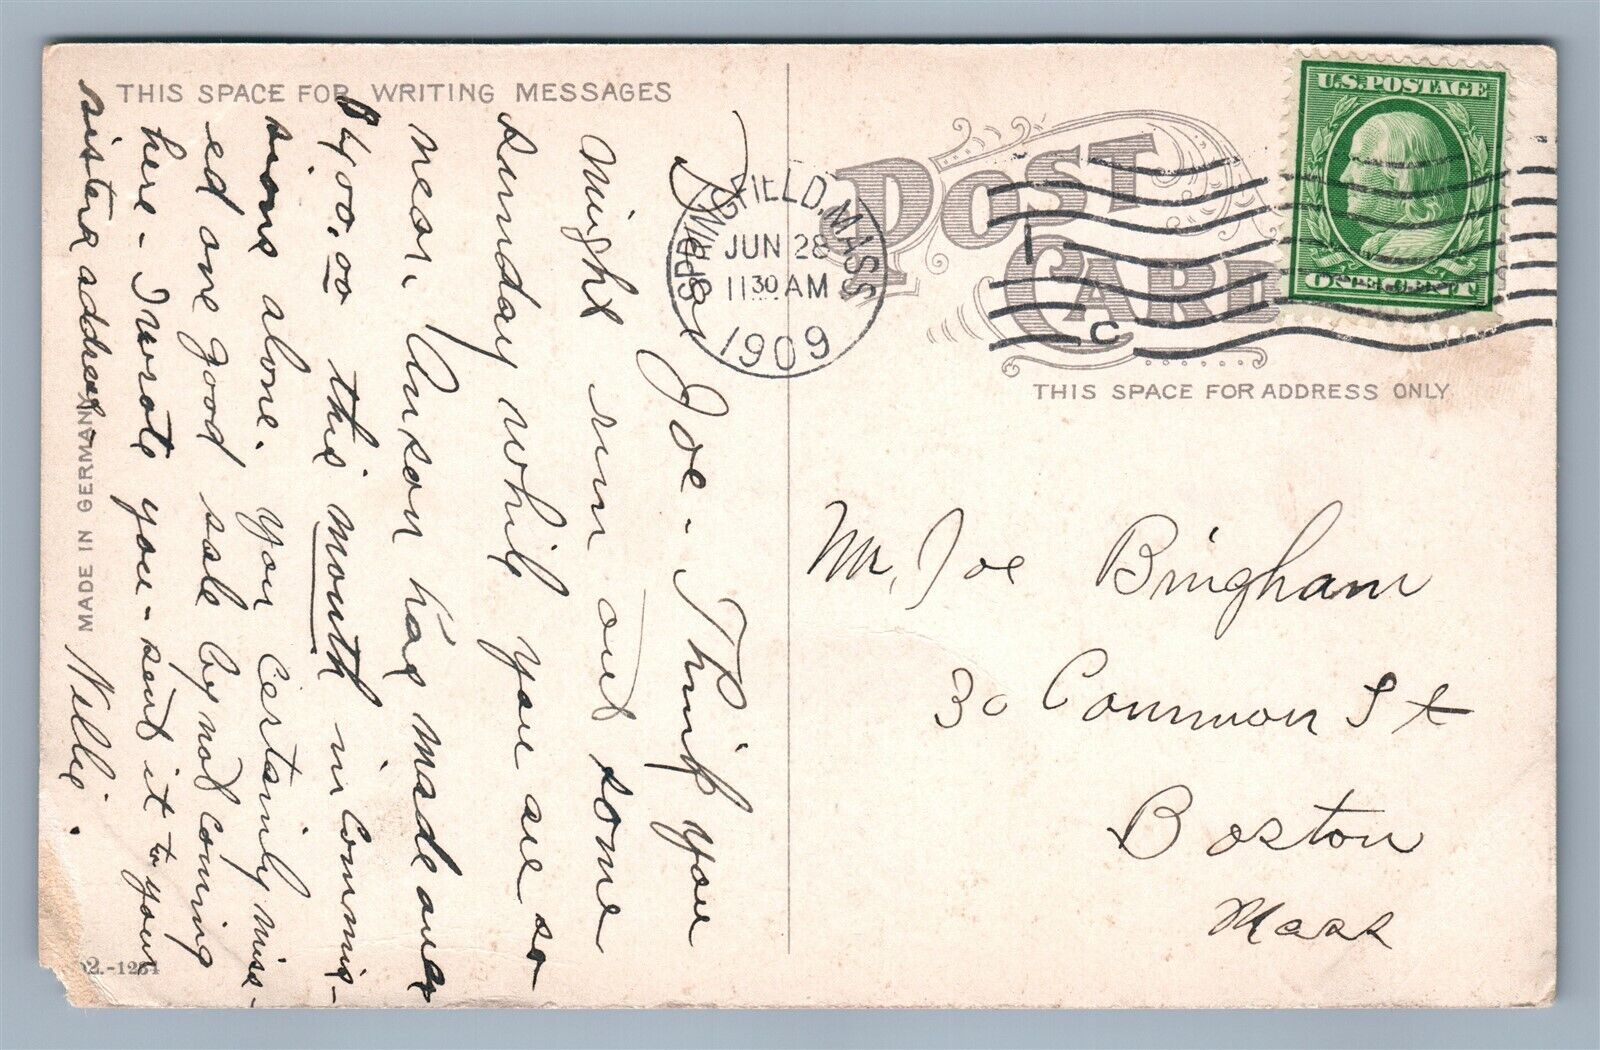 THIS SPACE FOR WRITING MESSAGES
POST CARD
THIS SPACE FOR ADDRESS ONLY
U.S. POSTAGE
ONE CENT
SPRINGFIELD, MASS
JUN 28
11 30 AM
1909
1
C
Dear
Joe - Think you
might run out some
Sunday while you are so
near. Anson has made over
$400.00 this month in commis-
sions alone. You certainly miss-
ed one good sale by not coming
here - I wrote you - sent it to your
sisters address -
Nellie.
Mr. Joe Bingham
30 Common St
Boston
Mass
MADE IN GERMANY
02.-1284